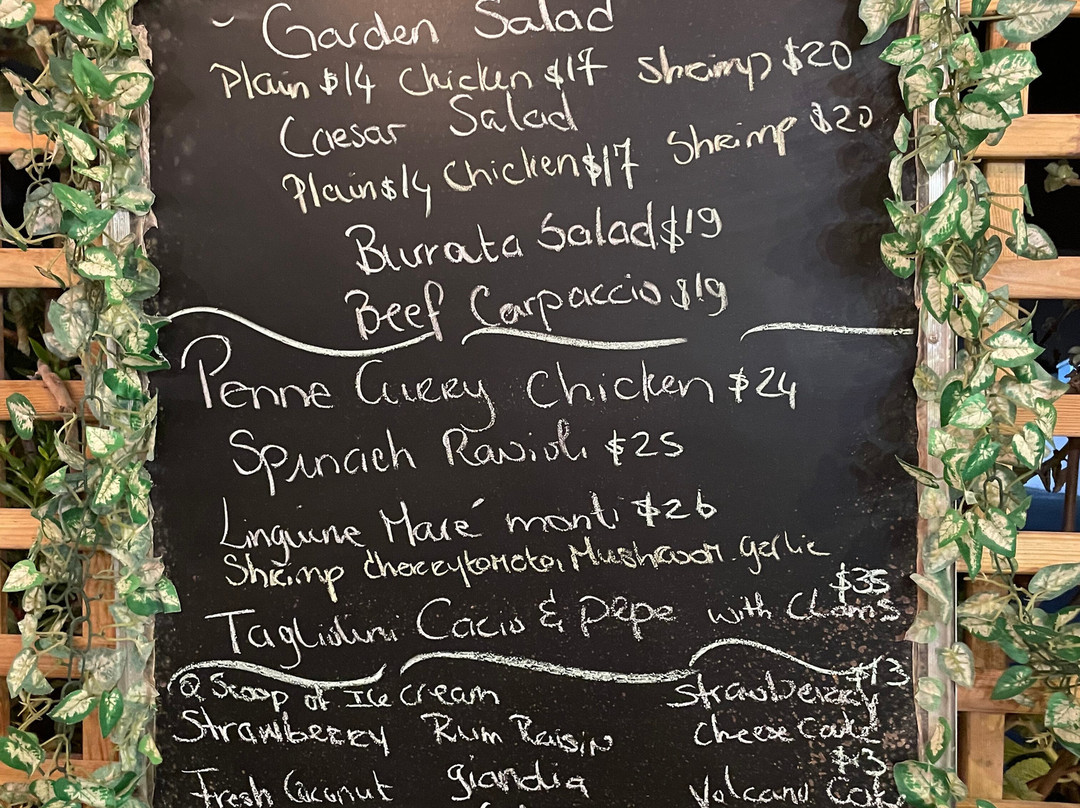 ~ Garden Salad
Plain $14 Chicken $17 Shrimp $20
Caesar Salad
Plain $14 Chicken $17 Shrimp $20
Burrata Salad $19
Beef Carpaccio $19
Penne Curry Chicken $24
Spinach Ravioli $25
Linguine Maré monti $26
Shrimp cherrytomato, Mushroom garlic
$35
Tagliolini Cacio & pepe with Clams
Scoop of Ice cream
$13
Strawberry
Strawberry Rum Raisin
cheese Cake
$13
Fresh Coconut giandia
Volcano Cake